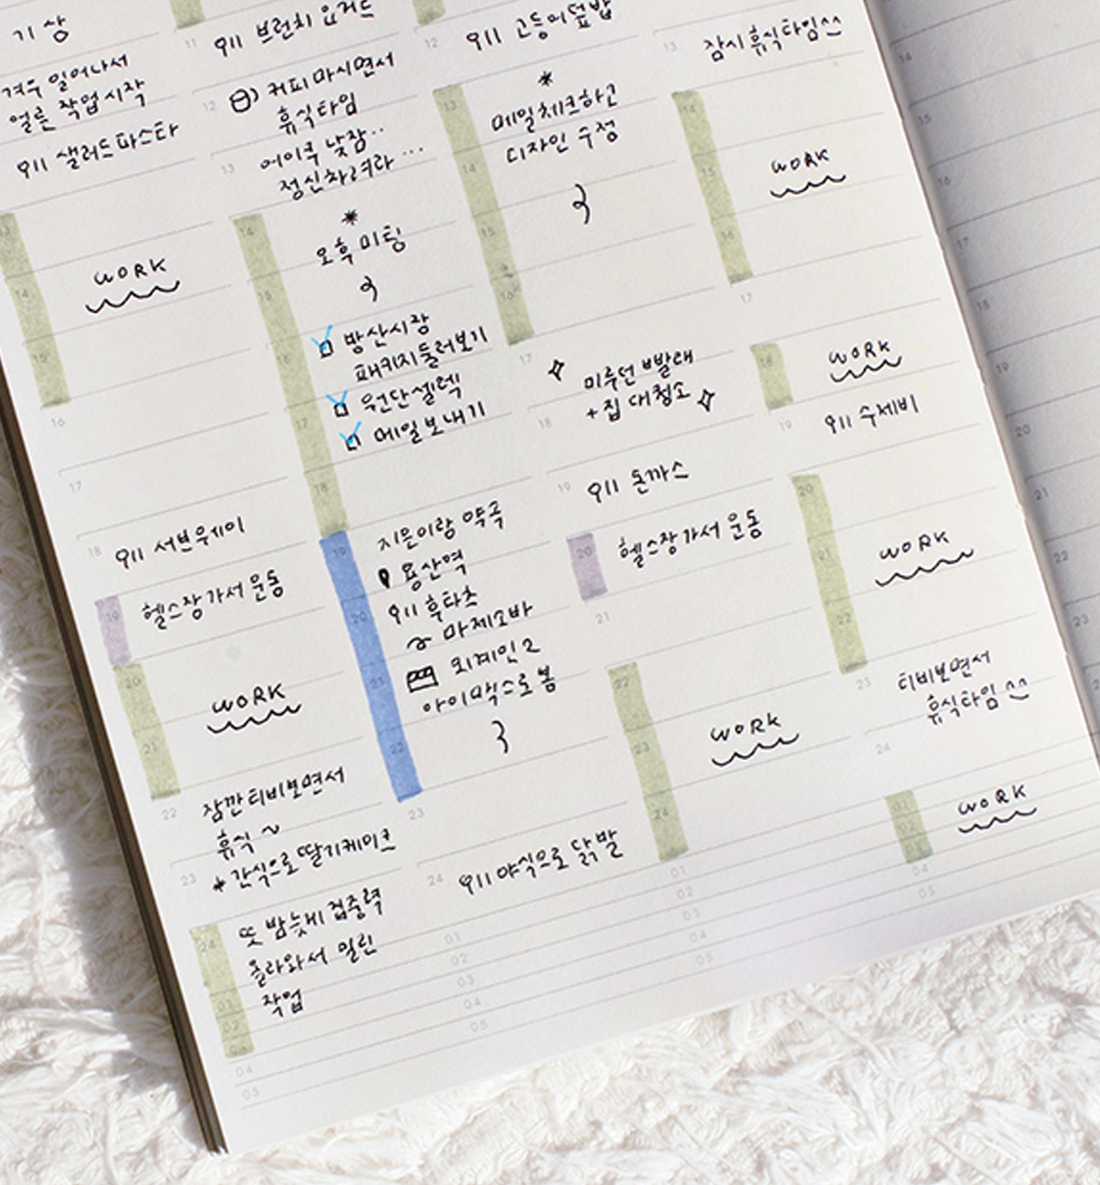 기상
겨우 일어나서
얼른 작업 시작
우11 샐러드파스타
13
WORK
14
15
16
17
18 우11 서브웨이
19 헬스장 가서 운동
20
WORK
21
22 잠깐 티비보면서
휴식 ~
23 + 간식으로 딸기케이크
24 또 밤늦게 집중력
올라와서 밀린
01 작업
02
03
04
05
11 우11 브런치 요거트
12 커피 마시면서
휴식타임
13 어이쿠 낮잠..
정신차려라 ...
14 * 오후 미팅
15
방산시장
16 패키지둘러보기
원단셀렉
17 메일보내기
18
19 지은이랑 약속
용산역
20 우11 후타츠
마제소바
21 외계인2
아이맥스로 봄
22
23
24 우11 야식으로 닭발
01
02
03
04
05
우11 고등어덮밥
12 *
13 메일체크하고
디자인 수정
14
15
16
17 미루던 빨래
+ 집 대청소
18
19 우11 돈까스
20 헬스장 가서 운동
21
22
23 WORK
24
01
02
03
04
05
13 잠시 휴식타임^^
14
WORK
15
16
17
18 WORK
19 우11 수제비
20
WORK
21
22
23 티비보면서
휴식타임 ^^
24
01 WORK
02
03
04
05
14
15
16
17
18
19
20
21
22
23